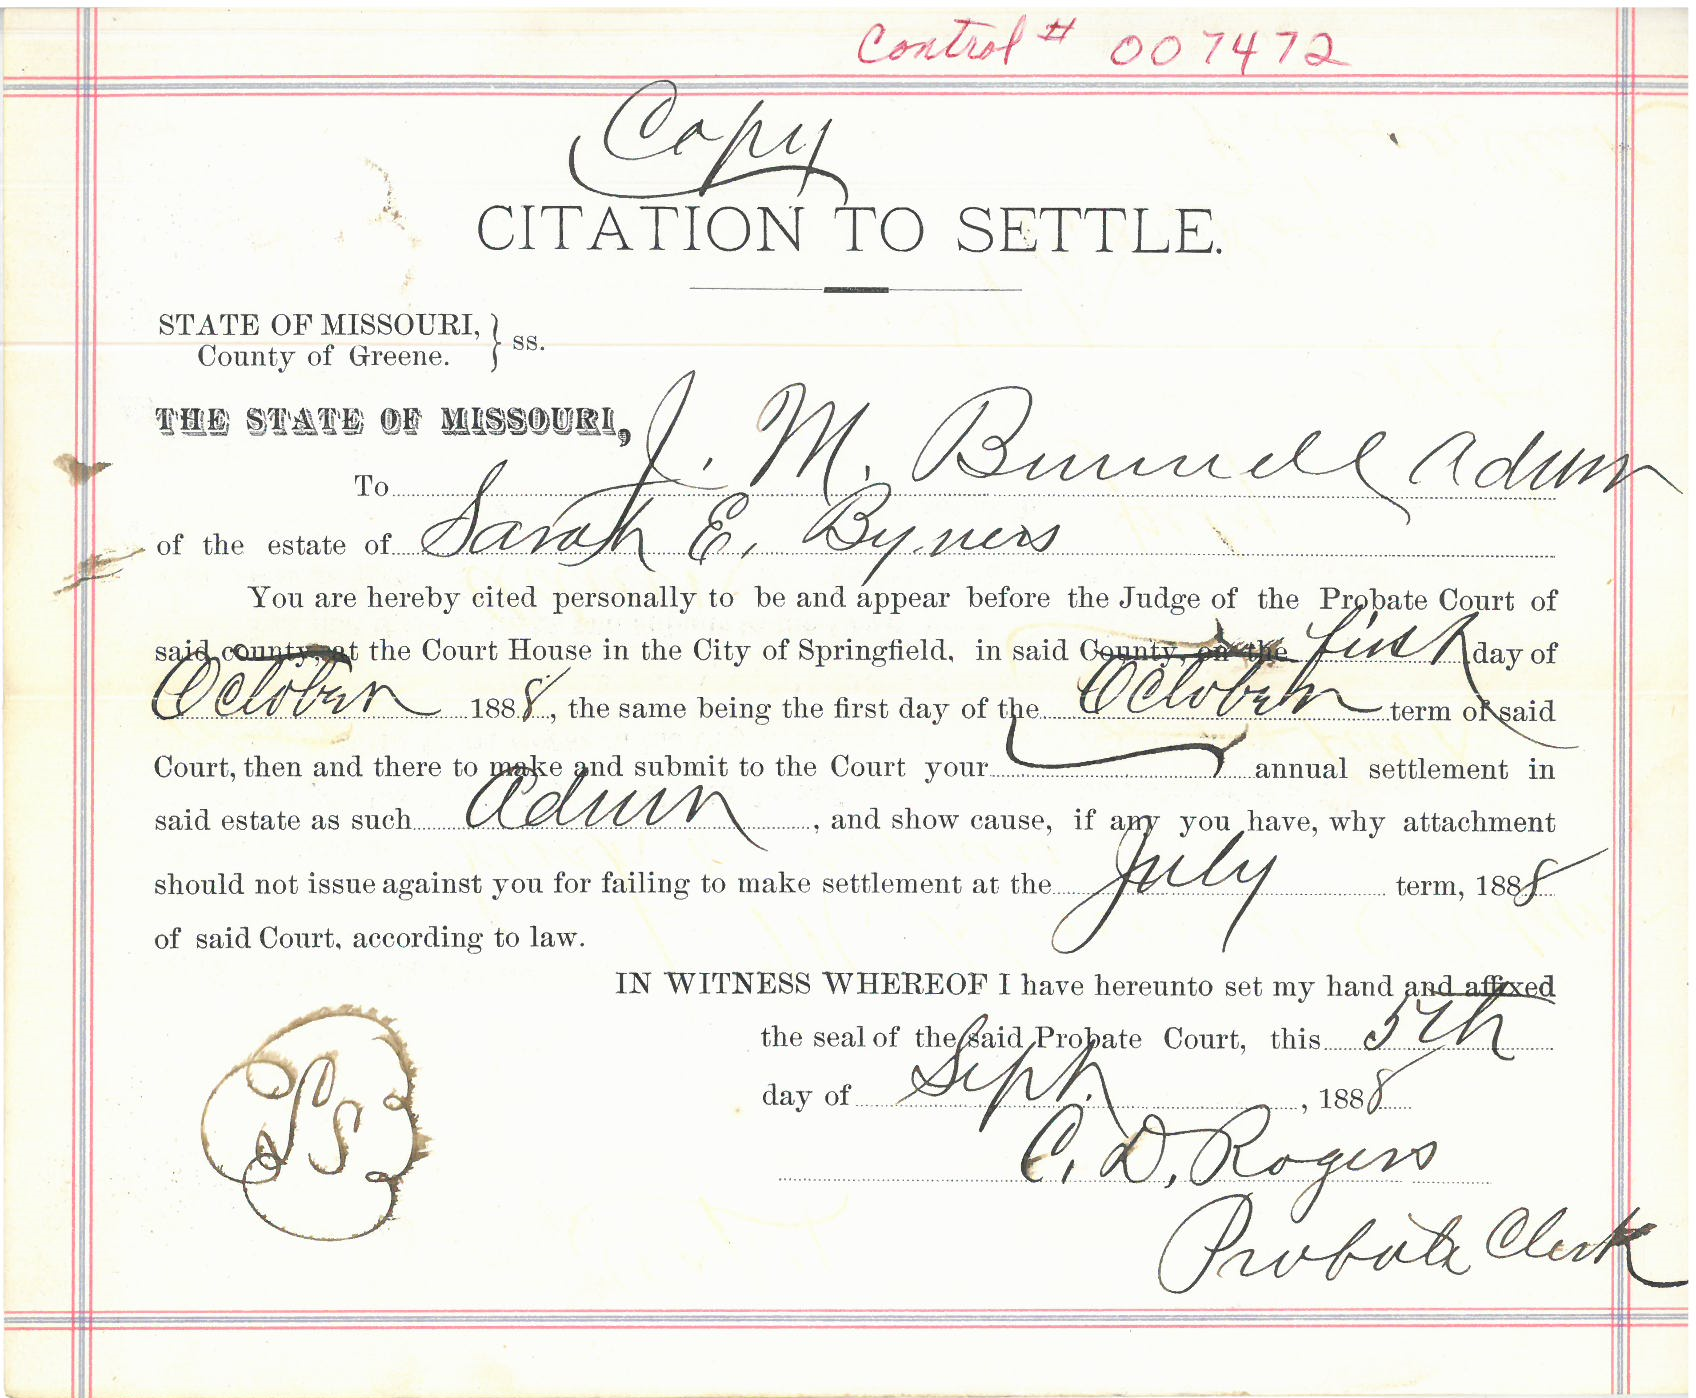 Control # 007472
Copy
CITATION TO SETTLE.
STATE OF MISSOURI, } ss.
County of Greene.
THE STATE OF MISSOURI,
To J. M. Bunnell Admr
of the estate of Sarah E. Byners
You are hereby cited personally to be and appear before the Judge of the Probate Court of
said county, at the Court House in the City of Springfield, in said County, on the first day of
October 1888, the same being the first day of the October term of said
Court, then and there to make and submit to the Court your annual settlement in
said estate as such Admr, and show cause, if any you have, why attachment
should not issue against you for failing to make settlement at the July term, 1888
of said Court, according to law.
IN WITNESS WHEREOF I have hereunto set my hand and affixed
the seal of the said Probate Court, this 5th
day of Sept. , 1888
C. D. Rogers
Probate Clerk